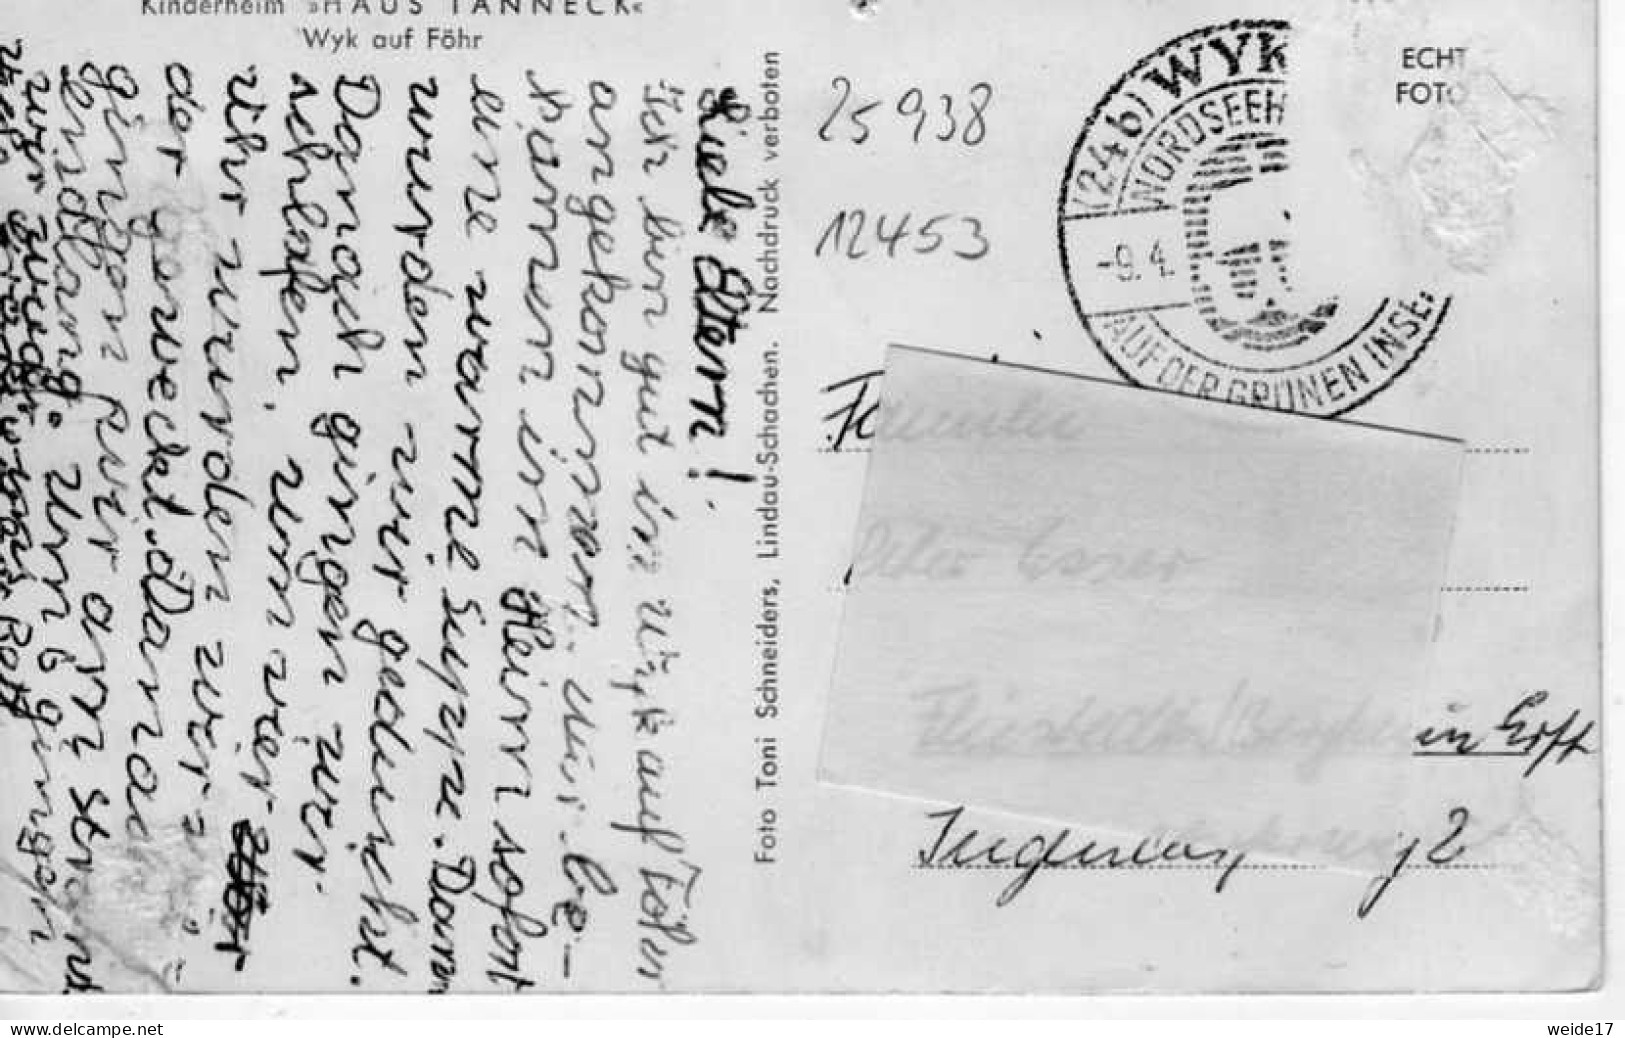 Kinderheim »HAUS TANNECK«
Wyk auf Föhr
Liebe Eltern!
Ich bin gut in Wyk auf Föhr
angekommen. Wir be-
kamen im Heim sofort
eine warme Suppe. Dann
wurden wir geduscht.
Danach gingen wir
schlafen. Um vier
Uhr wurden wir
der geweckt. Danach
gingen wir am Strand
entlang. Um 6 gingen
wir zu Bett
Foto Toni Schneiders, Lindau-Schachen. Nachdruck verboten
25938
12453
(24b) WYK
NORDSEEH
-9.4.
AUF DER GRÜNEN INSEL
ECHT
FOTO
Familie
Peter Esser
in Erft
2
delcampe.net
weide17